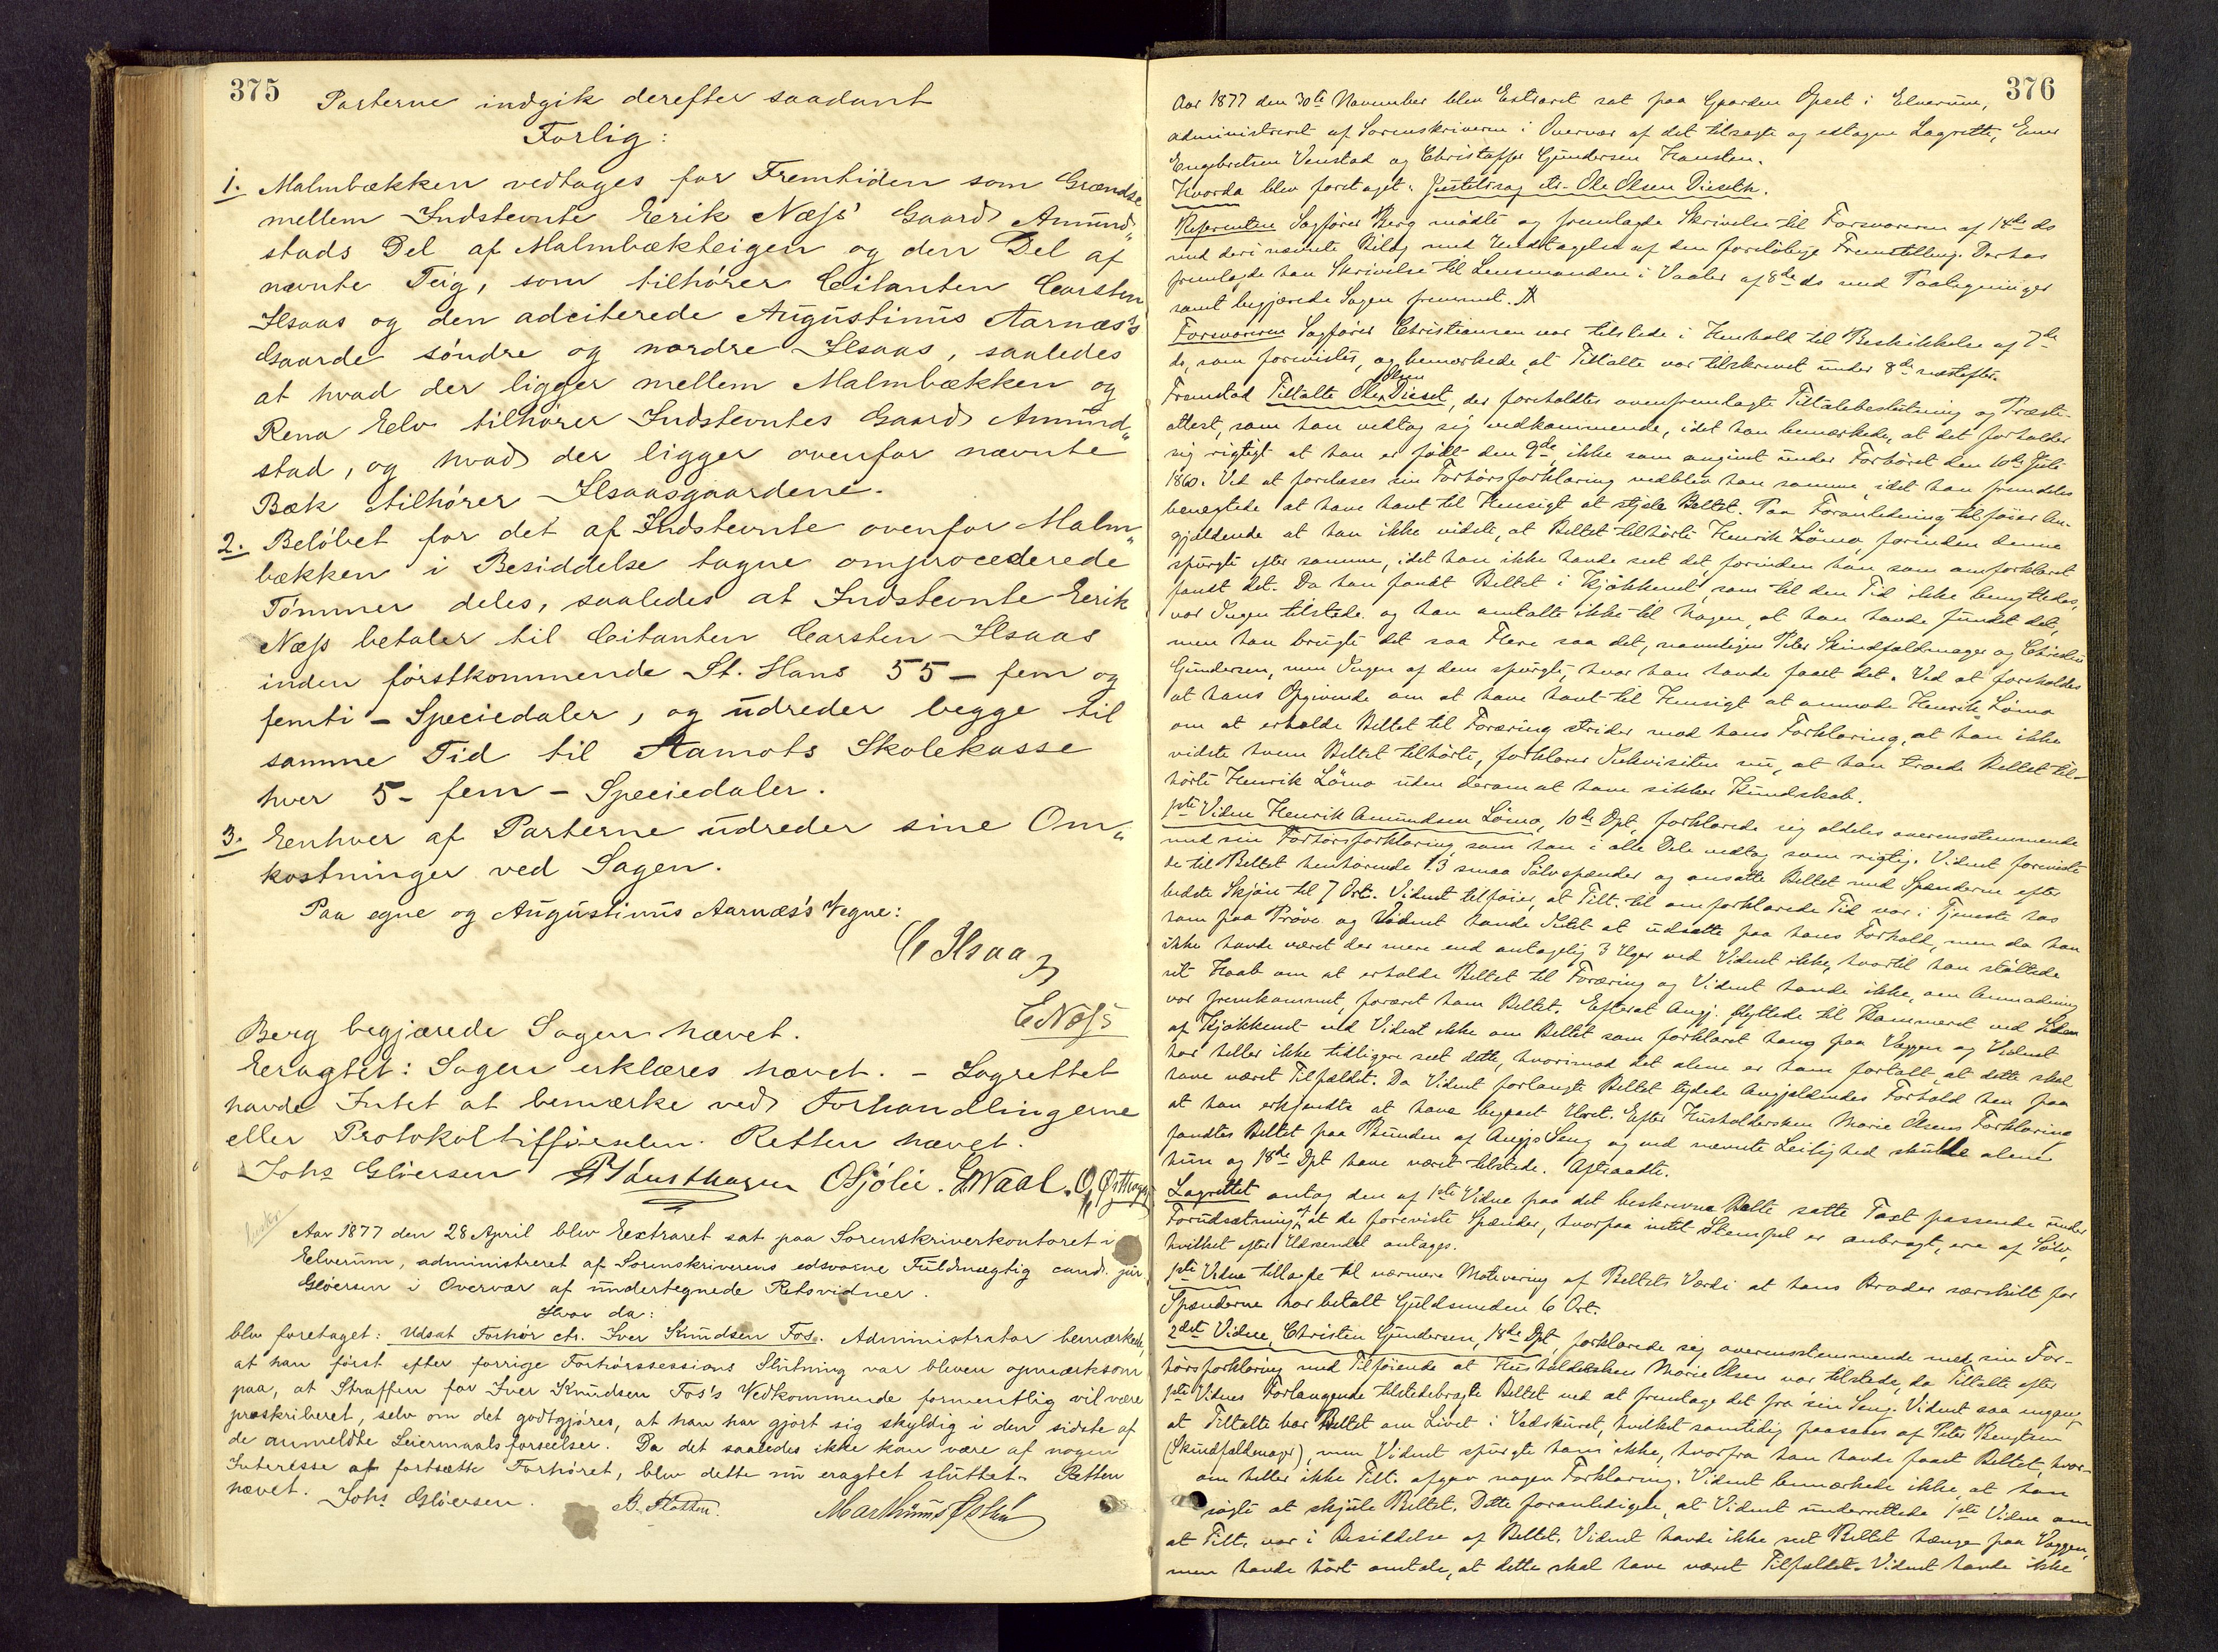 375
Parterne indgik derefter saadant
Forlig:
1. Malmbækken vedtages for Fremtiden som Grændse
mellem Indstevnte Eerik Næss' Gaard Amund"
stads Del af Malmbækteigen og den Del af
nævnte Teig, som tilhører Citanten Carsten
Ilsaas og den adciterede Augustinus Aarnæs's
Gaarde søndre og nordre Ilsaas, saaledes
at hvad der ligger mellem Malmbækken og
Rena Eelv tilhører Indstevntes Gaard Amund"
stad, og hvad der ligger ovenfor nævnte
Bæk tilhører Ilsaasgaardene.
2. Beløbet for det af Indstevnte ovenfor Malm"
bækken i Besiddelse tagne omprocederede
Tømmer deles, saaledes at Indstevnte Eerik
Næss betaler til Citanten Carsten Ilsaas
inden førstkommende St. Hans 55 - fem og
femti - Speciedaler, og udreder begge til
samme Tid til Aamots Skolekasse
hver 5 - fem - Speciedaler.
3. Eenhver af Parterne udreder sine Om"
kostninger ved Sagen.
Paa egne og Augustinus Aarnæs's Vegne:
C Ilsaas
E Næss
Berg begjærede Sagen hævet.
Eragtet: Sagen erklæres hævet. - Lagrettet
havde Intet at bemærke ved Forhandlingerne
eller Protokoltilførselen. Retten hævet.
Johs Gløersen OSjølie. Waal.
Aar 1877 den 28 April blev Eextraret sat paa Sorenskriverkontoret i
Elverum, administreret af Sorenskriverens edsvorne Fuldmægtig cand. jur.
Gløersen i Overvær af undertegnede Retsvidner.
Hvor da:
blev foretaget: Udsat Forhør ctr. Iver Knudsen Fos. Administrator bemærkede,
at han først efter forrige Forhørssessions Slutning var bleven opmærksom
paa, at Straffen for Iver Knudsen Fos's Vedkommende formentlig vil være
præskriberet, selv om det godtgjøres, at han har gjort sig skyldig i den sidste af
de anmeldte Leiermaalsforseelser. Da det saaledes ikke kan være af nogen
Interesse at fortsætte Forhøret, blev dette nu eragtet sluttet. Retten
hævet. Johs Gløersen.
376
Aar 1877 den 30te November blev Extraret sat paa Gaarden Opset i Elverum,
administreret af Sorenskriveren i Overvær af det tilsagte og edtagne Lagrette,
Engebretsen Venstad og Christoffer Gundersen
Hvorda blev foretaget: Justitssag ctr. Ole Olsen Dieseth.
Referenten Sagfører Berg mødte og fremlagde Skrivelse til Forsvareren af 14de ds
med deri nævnte Bilag med Undtagelse af den foreløbige Fremstilling. Derhos
fremlagde han Skrivelse til Lensmanden i Vaaler af 8de ds med Paategninger
samt begjærede Sagen fremmet.
Forsvareren Sagfører Christiansen var tilstede i Henhold til Beskikkelse af 7de
ds, som forevistes, og bemærkede, at Tiltalte var tilskrevet under 8de næstefter.
Fremstod Tiltalte Ole Olsen Dieset, der foreholdtes ovenfremlagte Tiltalebeslutning og Præste-
attest, som han vedtog sig vedkommende, idet han bemærkede, at det forholder
sig rigtigt at han er født den 9de, ikke som angivet under Forhøret den 10de Juli
1860. Ved at forelæses sin Forhørsforklaring vedblev han samme, idet han fremdeles
benegtede at have havt til Hensigt at stjæle Beltet. Paa Foranledning tilføier An-
gjældende at han ikke vidste, at Beltet tilhørte Henrik Lömo, forinden denne
spurgte efter samme, idet han ikke havde seet det, forinden han som omforklaret
fandt det. Da han fandt Beltet i Kjøkkenet, som til den Tid ikke benyttedes,
var Ingen tilstede og han omtalte ikke til Nogen, at han havde fundet det,
men han brugte det saa Flere saa det, navnligen Peter Skindfeldmager og Christen
Gundersen, men Ingen af dem spurgte, hvor han havde faaet det. Ved at foreholdes
at hans Opgivende om at have havt til Hensigt at anmode Henrik Lömo
om at erholde Beltet til Foræring strider mod hans Forklaring, at han ikke
vidste hvem Beltet tilhørte, forklarer Inkvisiten nu, at han troede Beltet til-
hørte Henrik Lömo uden derom at have sikker Kundskab.
1ste Vidne Henrik Amundsen Lömo, 10de Dpt, forklarede sig aldeles overensstemmende
med sin Forhørsforklaring, som han i alle Dele vedtog som rigtig. Vidnet foreviste
de til Beltet henhørende 13 smaa Sølvspænder og ansatte Beltet med Spænderne efter
bedste Skjøn til 7 Ort. Vidnet tilføier, at Tilt. til omforklarede Tid var i Tjeneste hos
ham paa Prøve og Vidnet havde Intet at udsætte paa hans Forhold, men da han
ikke havde været der mere end antagelig 3 Uger ved Vidnet ikke, hvortil han støttede
sit Haab om at erholde Beltet til Foræring og Vidnet havde ikke, om Anmodning
var fremkommet, foræret ham Beltet. Efterat Angj. flyttede til Kammeret ved Siden
af Kjøkkenet ved Vidnet ikke om Beltet som forklaret hang paa Væggen og Vidnet
har heller ikke tidligere seet dette, hvorimod det alene er ham fortalt, at dette skal
have været Tilfældet. Da Vidnet forlangte Beltet tydede Angjældendes Forhold hen paa
at han erkjendte at have begaaet Uret. Efter Husholdersken Marie Olsens Forklaring
fandtes Beltet paa Bunden af Angjs Seng og ved nævnte Leilighed skulde alene
hun og 18de Dpt have været tilstede. Aftraadte.
Lagrettet antog den af 1ste Vidne paa det beskrevne Belte satte Taxt passende under
Forudsætning af at de foreviste Spænder, hvorpaa intet Stempel er anbragt, ere af Sølv,
hvilket efter Udseendet antages.
1ste Vidne tillagde til nærmere Motivering af Beltets Værdi at hans Broder særskilt for
Spænderne har betalt Guldsmeden 6 Ort.
2det Vidne, Christen Gundersen, 18de Dpt, forklarede sig overensstemmende med sin For-
hørsforklaring med Tilføiende at Husholdersken Marie Olsen var tilstede, da Tiltalte efter
1ste Vidnes Forlangende tilstedebragte Beltet ved at fremtage det fra sin Seng. Vidnet saa engang
at Tiltalte bar Beltet om Livet i Vedskuret, hvilket samtidig paasaaes af Peter Bengtsen
(Skindfeldmager), men Vidnet spurgte ham ikke, hvorfra han havde faaet Beltet, hvor-
om heller ikke Tilt. afgav nogen Forklaring. Vidnet bemærkede ikke, at han
søgte at skjule Beltet. Dette foranledigede, at Vidnet underrettede 1ste Vidne om
at Tilt. var i Besiddelse af Beltet. Vidnet havde ikke seet Beltet hænge paa Væggen,
men havde hørt omtale, at dette skal have været Tilfældet. Vidnet havde ikke